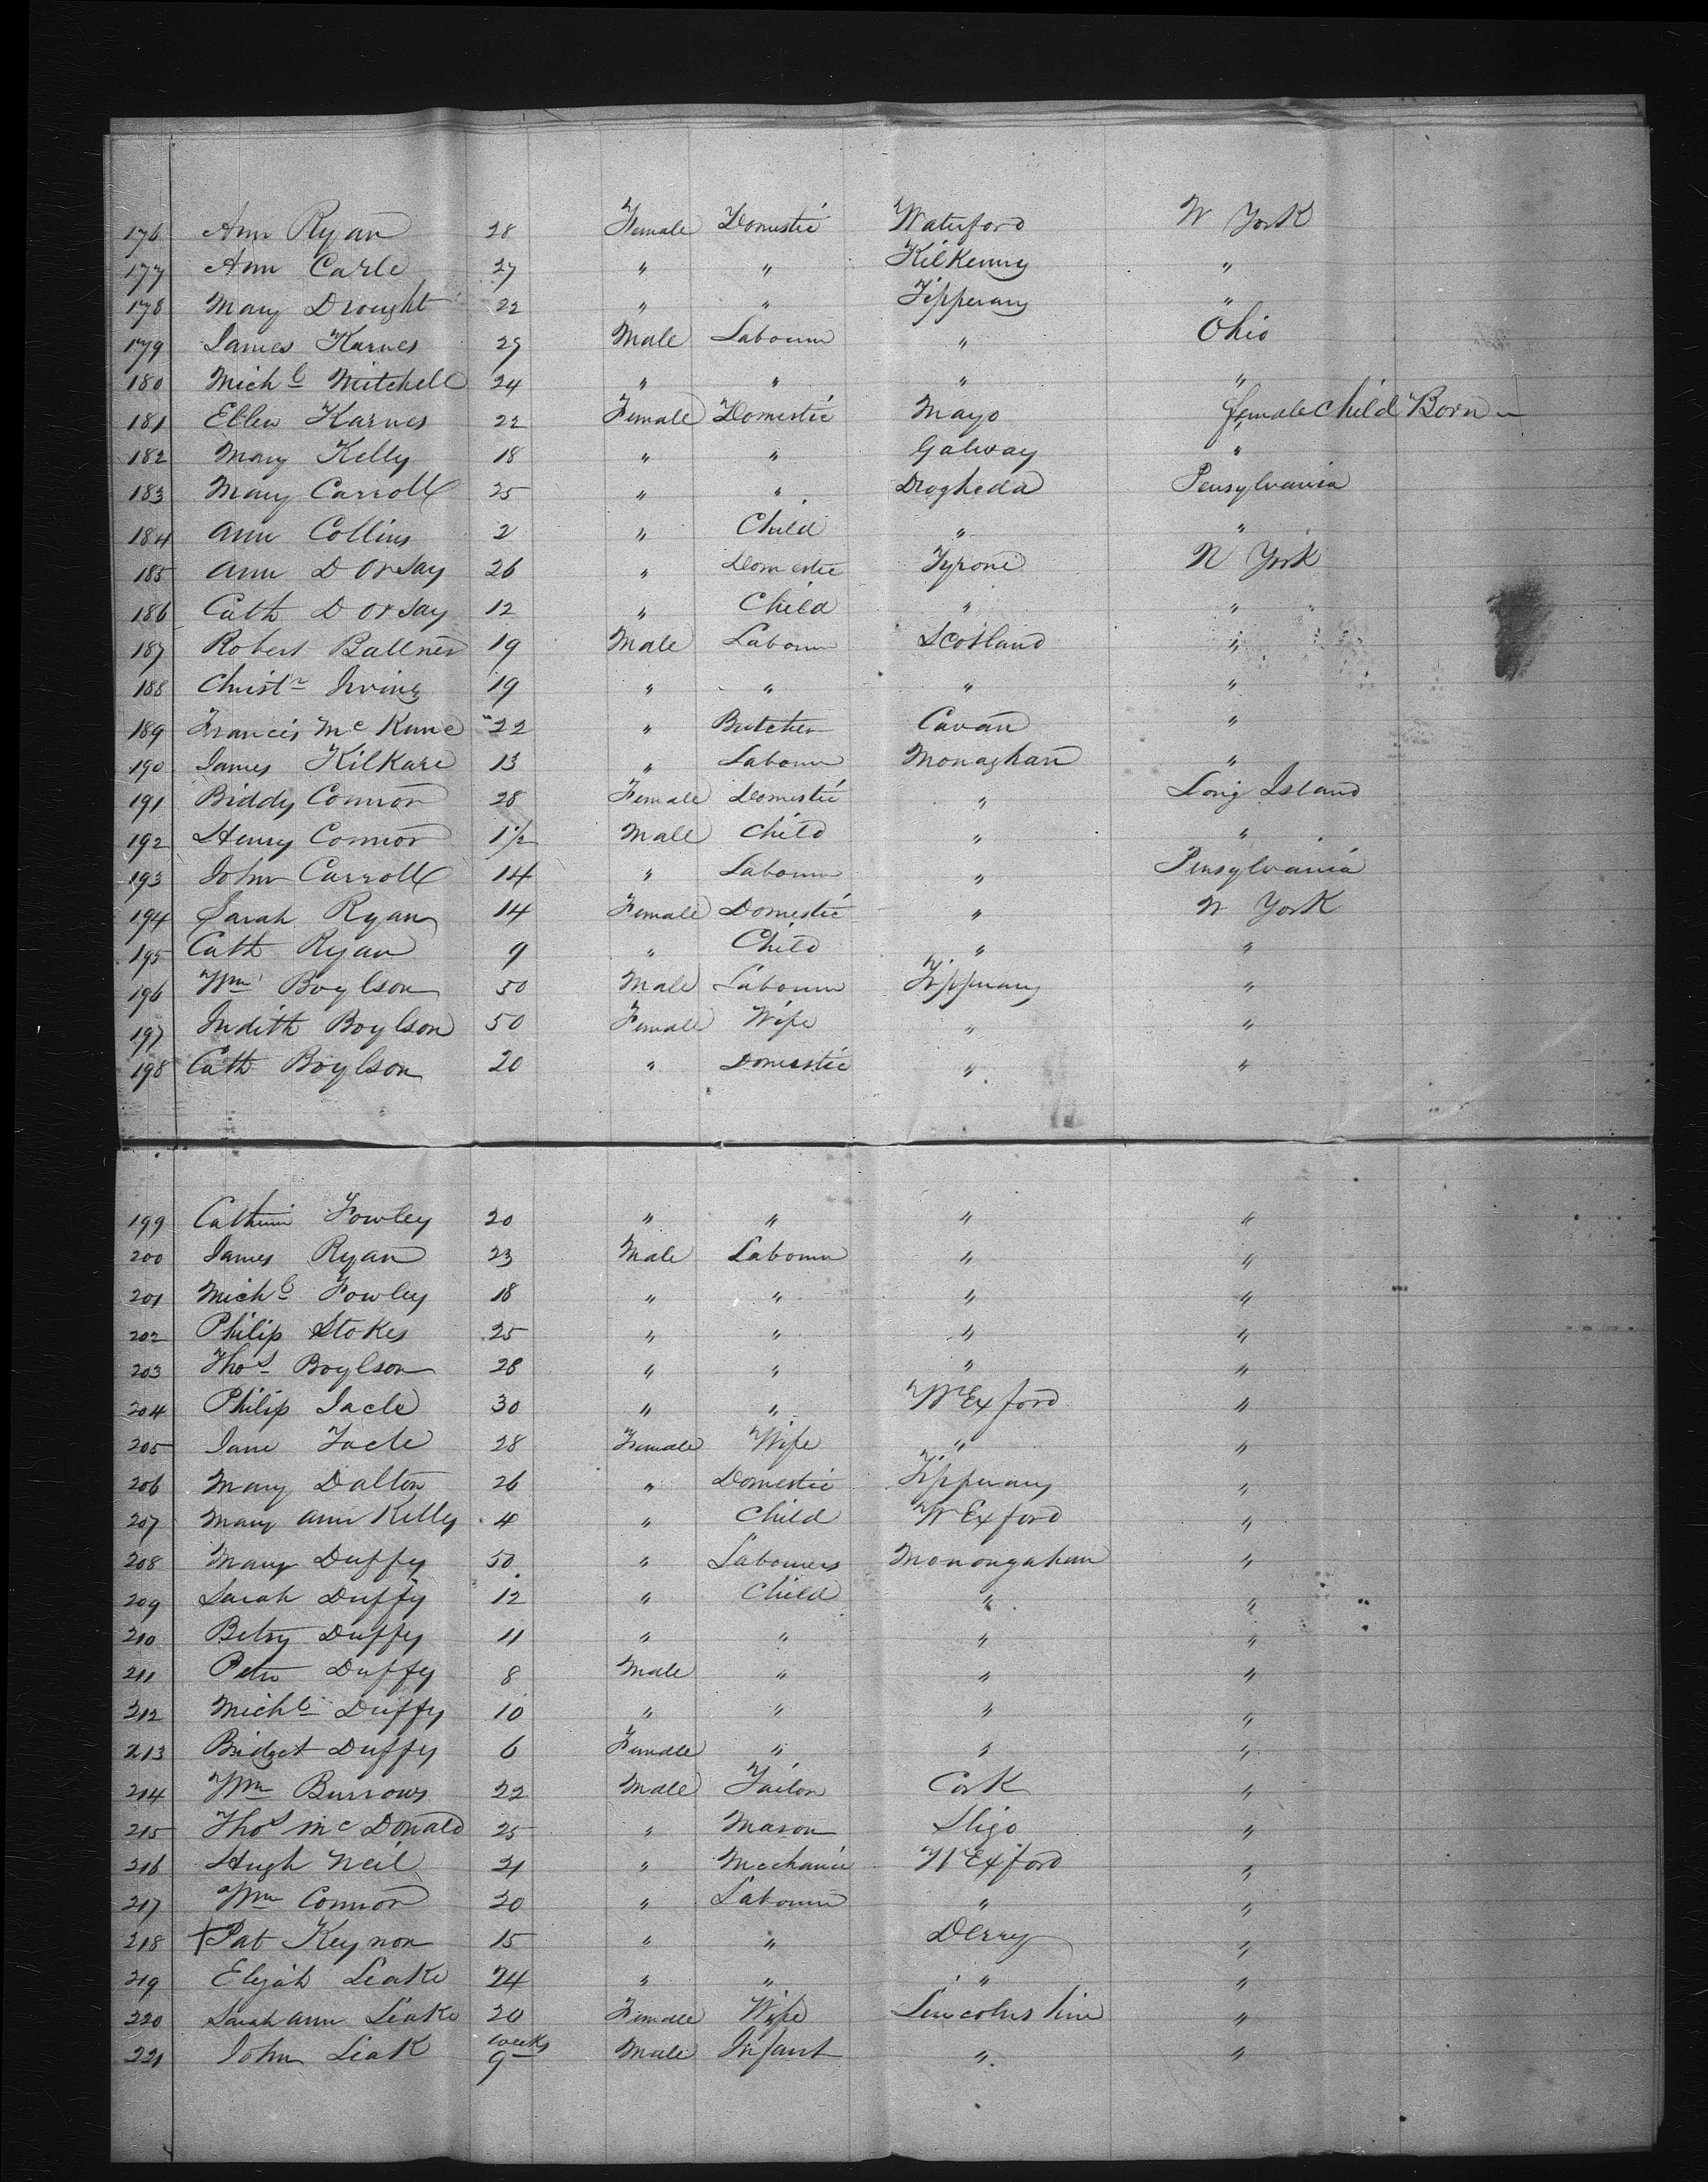 176 Ann Ryan 28 Female Domestic Waterford N York
177 Ann Carle 27 " " Kilkenny "
178 Mary Drought 22 " " Tipperary "
179 James Karnes 29 Male Labourer " Ohio
180 Michl Mitchell 24 " " " "
181 Ellen Karnes 22 Female Domestic Mayo " female child Born
182 Mary Kelly 18 " " Galway "
183 Mary Carroll 25 " " Drogheda Pensylvania
184 Ann Collins 2 " Child " "
185 Ann D Orsay 26 " Domestic Tyrone N York
186 Cath D Orsay 12 " Child " "
187 Robert Ballner 19 Male Labourer Scotland "
188 Christr Irving 19 " " " "
189 Francis McKune 22 " Butcher Cavan "
190 James Kilkare 13 " Labourer Monaghan "
191 Biddy Connor 28 Female Domestic " Long Island
192 Henry Connor 1½ Male Child " "
193 John Carroll 14 " Labourer " Pensylvania
194 Sarah Ryan 14 Female Domestic " N York
195 Cath Ryan 9 " Child " "
196 Wm Boylson 50 Male Labourer Tipperary "
197 Judith Boylson 50 Female Wife " "
198 Cath Boylson 20 " Domestic " "
199 Catherine Fowley 20 " " " "
200 James Ryan 23 Male Labourer " "
201 Michl Fowley 18 " " " "
202 Philip Stokes 25 " " " "
203 Thos Boylson 28 " " " "
204 Philip 30 " " WExford "
205 Jane 28 Female Wife " "
206 Mary Dalton 26 " Domestic Tipperary "
207 Mary Ann Kelly 4 " Child WExford "
208 Mary Duffy 50 " Labourers Monongahan "
209 Sarah Duffy 12 " Child " "
210 Betsy Duffy 11 " " " "
211 Peter Duffy 8 Male " " "
212 Michl Duffy 10 " " " "
213 Bridget Duffy 6 Female " " "
214 Wm Burrows 22 Male Tailor Cork "
215 Thos McDonald 25 " Mason Sligo "
216 Hugh Neil 21 " Mechanic WExford "
217 Wm Connor 20 " Labourer " "
218 + Pat Keynon 15 " " Derry "
219 Elijah Leake 24 " " " "
220 Sarah Ann Leake 20 Female Wife Lincolnshire "
221 John Leak 9 weeks Male Infant " "